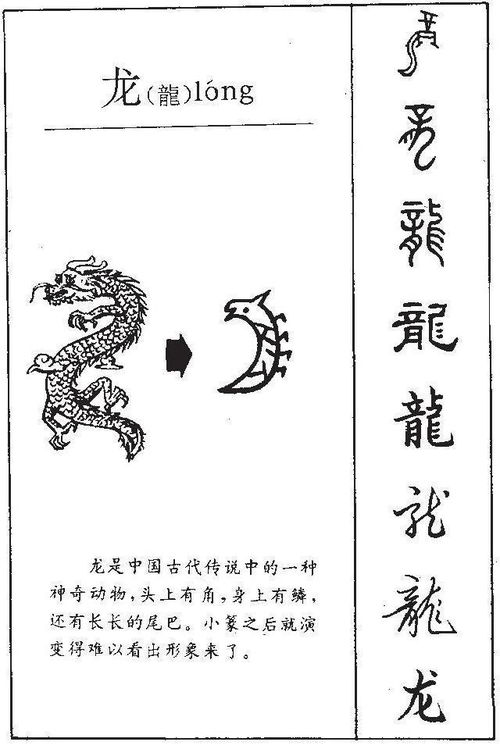 龙(龍)lóng
龙是中国古代传说中的一种
神奇动物，头上有角，身上有鳞，
还有长长的尾巴。小篆之后就演
变得难以看出形象来了。
龍
龍
龍
龍
龍
龍
龍
龙